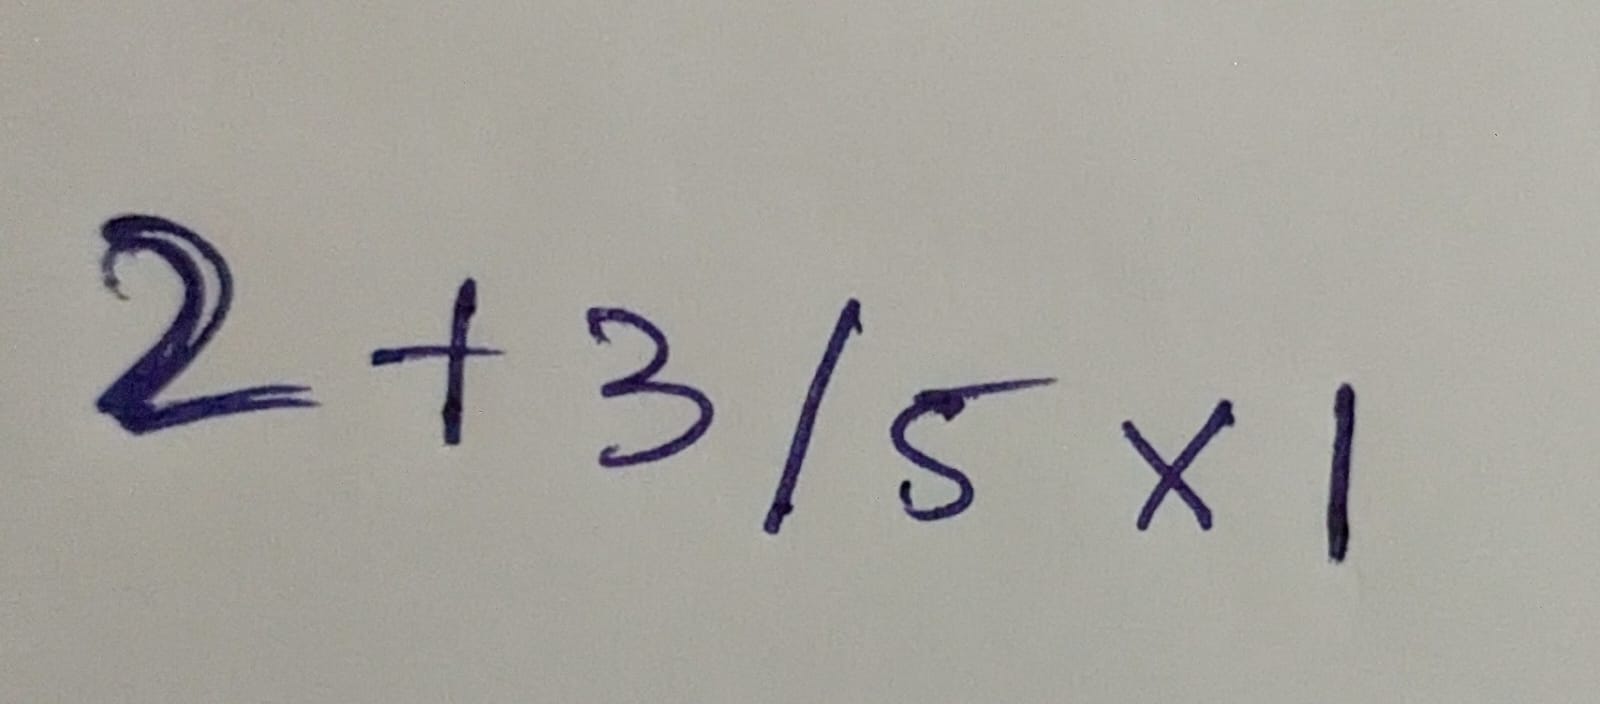 2 + 3 / 5 × 1